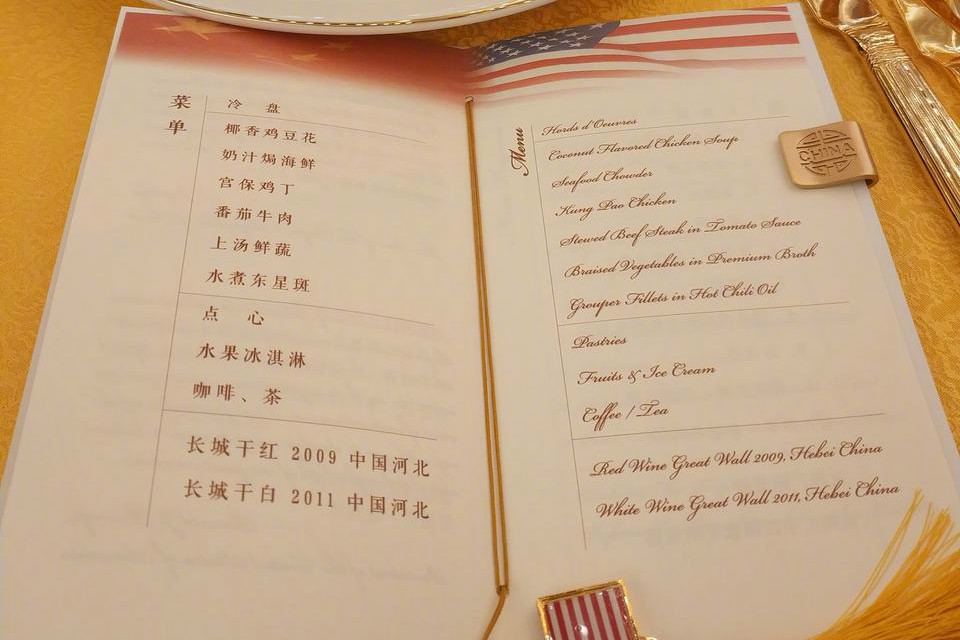 菜单
冷 盘
椰香鸡豆花
奶汁焗海鲜
宫保鸡丁
番茄牛肉
上汤鲜蔬
水煮东星斑
点 心
水果冰淇淋
咖啡、茶
长城干红 2009 中国河北
长城干白 2011 中国河北
Menu
Hords d'Oeuvres
Coconut Flavored Chicken Soup
Seafood Chowder
Kung Pao Chicken
Stewed Beef Steak in Tomato Sauce
Braised Vegetables in Premium Broth
Grouper Fillets in Hot Chili Oil
Pastries
Fruits & Ice Cream
Coffee / Tea
Red Wine Great Wall 2009, Hebei China
White Wine Great Wall 2011, Hebei China
CHINA